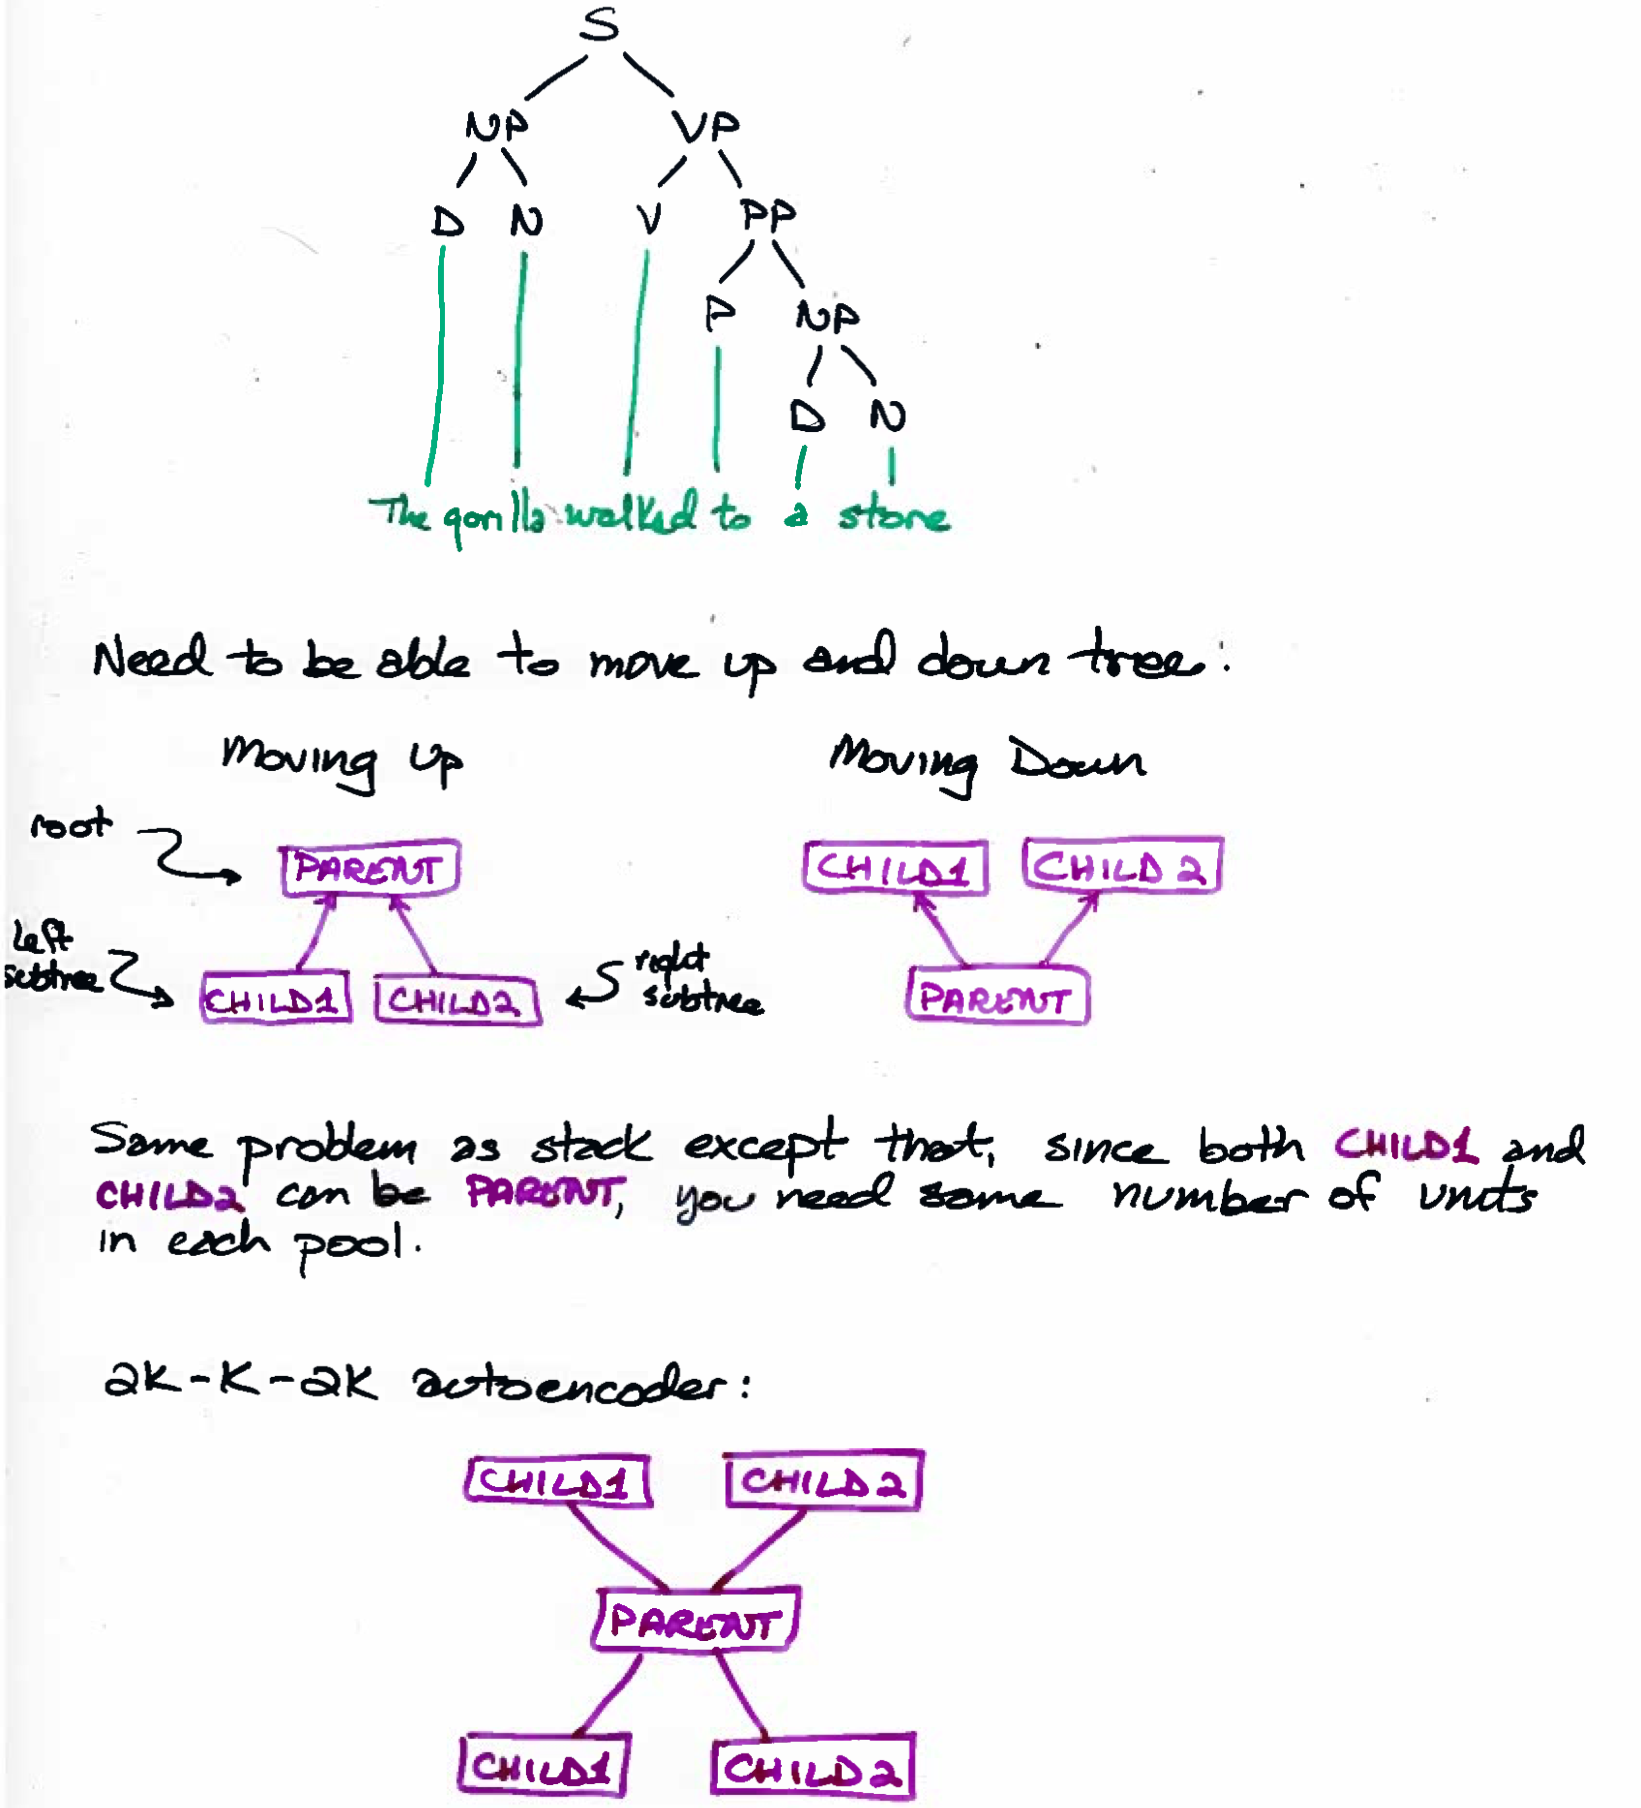 S
NP VP
D N V PP
P NP
D N
The gorilla walked to a store
Need to be able to move up and down tree:
Moving Up Moving Down
root
PARENT CHILD1 CHILD2
left
subtree
CHILD1 CHILD2
right
subtree
PARENT
Same problem as stack except that, since both CHILD1 and
CHILD2 can be PARENT, you need same number of units
in each pool.
2K-K-2K autoencoder:
CHILD1 CHILD2
PARENT
CHILD1 CHILD2